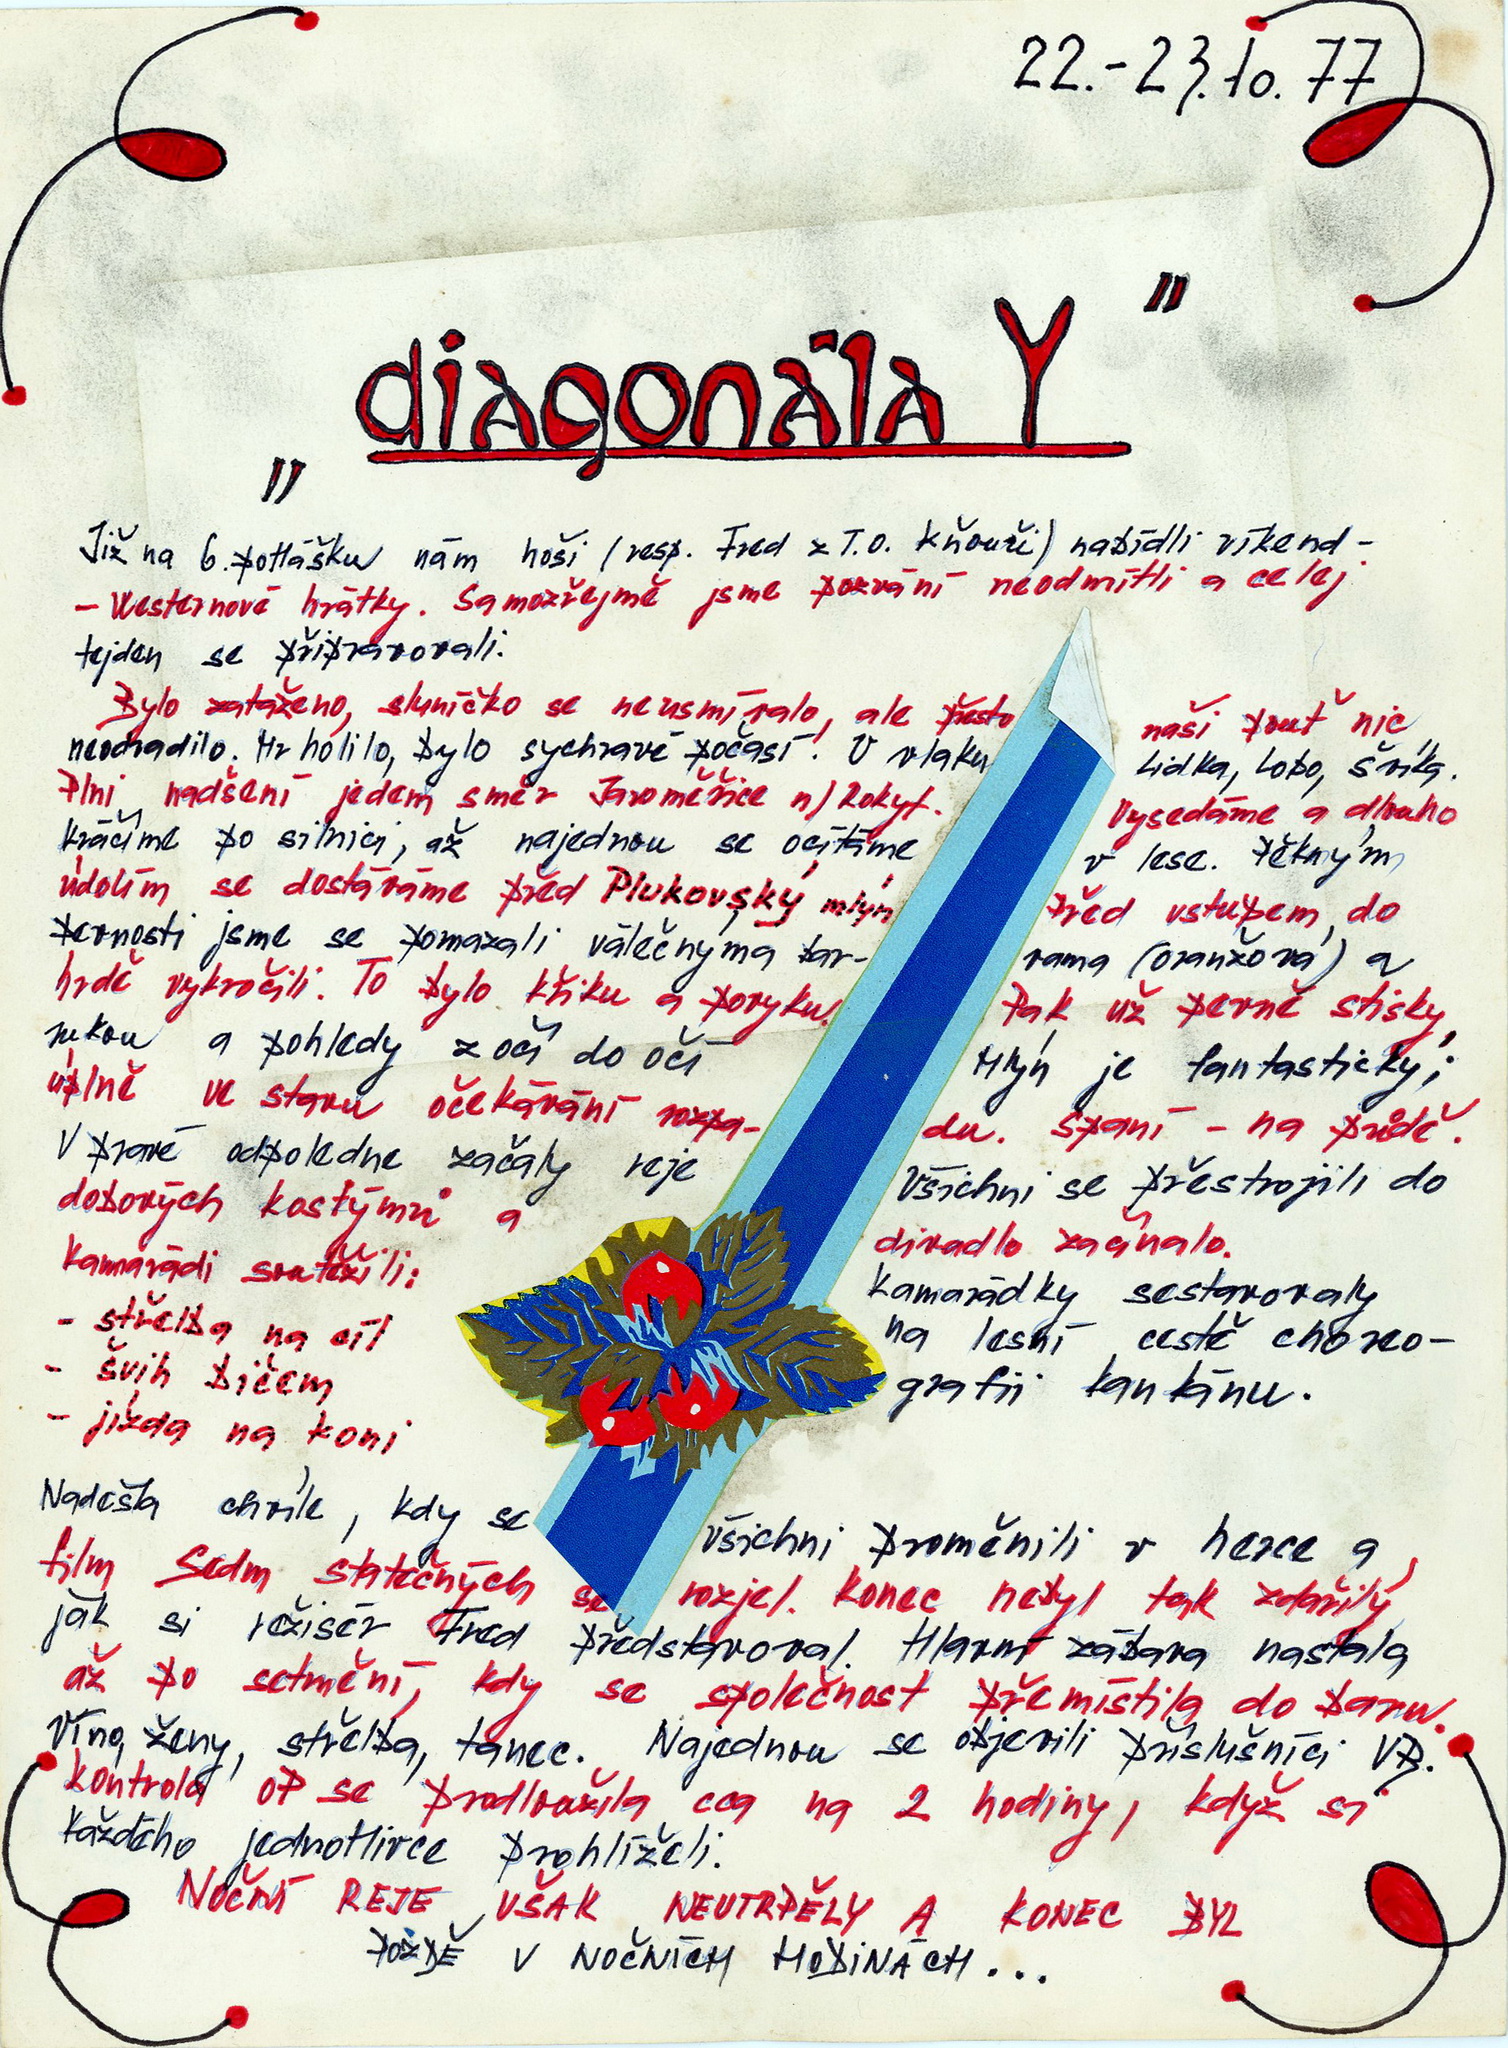 22.-23.10.77
"diagonála Y"
Již na 6. potlášku nám hoši (resp. Fred z T.O. Kňouři) nabídli víkend -
- Westernové hrátky. Samozřejmě jsme pozvání neodmítli a celej
tejden se připravovali.
Bylo zataženo, sluníčko se neusmívalo, ale přesto naši pouť nic
neodradilo. Mrholilo, bylo sychravé počasí. V vlaku Lidka, Lobo, Švíka.
Plni nadšení jedem směr Jaroměřice n/Rokyt. Vysedáme a dlouho
kráčíme po silnici, až najednou se ocitáme v lese. Pěkným
údolím se dostáváme před Plukovský mlýn Před vstupem do
pevnosti jsme se pomazali válečnýma bar- vama (oranžová) a
hrdě vykročili. To bylo křiku a povyku. Pak už pevné stisky
rukou a pohledy z očí do očí Mlýn je fantastický;
úplně ve stavu očekávání rozpa- du. Spaní - na půdě.
V pravé odpoledne začaly reje Všichni se přestrojili do
dobových kostýmů a divadlo začínalo.
Kamarádi soutěžili: Kamarádky sestavovaly
- střelba na cíl na lesní cestě choreo-
- švih bičem grafii kankánu.
- jízda na koni
Nadešla chvíle, kdy se všichni proměnili v herce a
film Sedm statečných se rozjel. Konec nebyl tak zdařilý
jak si režisér Fred představoval. Hlavní zábava nastala
až po setmění, kdy se společnost přemístila do baru.
Víno, ženy, střelba, tanec. Najednou se objevili příslušníci VB.
Kontrola OP se prodloužila cca na 2 hodiny, když si
každého jednotlivce prohlíželi.
NOČNÍ REJE VŠAK NEUTRPĚLY A KONEC BYL
POZDĚ V NOČNÍCH HODINÁCH...